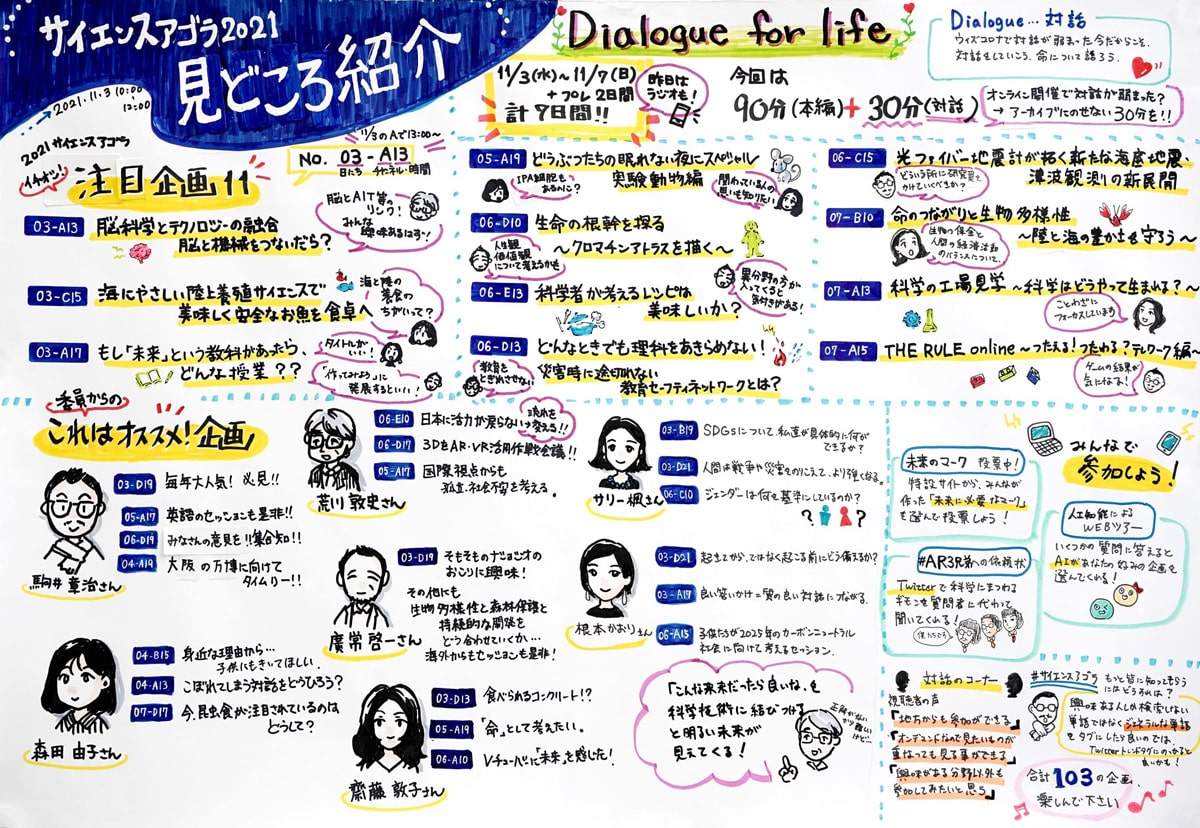 サイエンスアゴラ2021
見どころ紹介
2021.11.3 10:00
12:00
Dialogue for life
11/3(水)~11/7(日)
+プレ2日間
計7日間!!
昨日は
ラジオも!
今回は
90分(本編)+30分(対話)
Dialogue…対話
ウィズコロナで対話が弱まった今だからこそ、
対話をしていこう、命について語ろう。
オンライン開催で対話が弱まった?
→アーカイブにのせない30分を!!
2021サイエンスアゴラ
イチオシ!
注目企画11
11/3のAで13:00~
No. 03-A13
日にち チャンネル・時間
03-A13
脳科学とテクノロジーの融合
脳と機械をつないだら?
脳とAIT等の
リンク!
みんな
興味あるはず~!
03-C15
海にやさしい陸上養殖サイエンスで
美味しく安全なお魚を食卓へ
海と陸の
養食の
ちがいって?
03-A17
もし「未来」という教科があったら、
どんな授業??
タイトルが
いい!
「作ってみよう」に
発展するといい!
05-A19
どうぶつたちの眠れない夜にスペシャル
実験動物編
IPA細胞も
あるぺこ?
関わっている人の
思いも知りたい!
06-D10
生命の根幹を探る
~クロマチンアトラスを描く~
人生観
価値観
について考えるかも
06-E13
科学者が考えるレシピは
美味しいか?
異分野の方が
入ってくると
気付きがある!
06-D13
どんなときでも理科をあきらめない!
災害時に途切れない
教育セーフティネットワークとは?
教育を
とぎれさせない
06-C15
光ファイバー地震計が拓く新たな海底地震・
津波観測の新展開
どういう所に研究費を
かけていくべきか?
07-B10
命のつながりと生物多様性
~陸と海の豊かさを守ろう~
生物の保全と
人間の経済活動
のバランスについて、
07-A13
科学の工場見学~科学はどうやって生まれる?~
ことわざに
フォーカスしています
07-A15
THE RULE online~つたえる!つたわる?テレワーク編~
ゲームの結果が
気になる!
委員からの
これはオススメ!企画
03-D19
毎年大人気!必見!!
05-A17
英語のセッションも是非!!
06-D19
みなさんの意見を!!集合知!!
04-A19
大阪の万博に向けて
タイムリー!!
駒井章治さん
06-E10
日本に活力が戻らない→
流れを
変える!!
06-D17
3DをAR・VR活用作戦会議!!
05-A17
国際視点からも
孤立・社会不安を考える。
荒川敦史さん
03-B19
SDGsについて私達が具体的に何が
できるか?
03-D21
人間は戦争や災害をのりこえて、より強くなる。
06-C10
ジェンダーは何を基準にしているのか?
サリー楓さん
04-B15
身近な理由から…
子供にもきいてほしい。
04-A13
こぼれてしまう対話をどうひろう?
07-D17
今、昆虫食が注目されているのは
どうして?
森田由子さん
03-D19
そもそものナショナルの
おこりに興味!
その他にも
生物多様性と森林保護と
持続的な開発を
どう合わせていくか…
海外からもセッションも是非!
廣常啓一さん
03-D21
起きてから、ではなく起こる前にどう備えるか?
03-A17
良い笑いかけ=質の良い対話につながる。
06-A15
子供たちが2025年のカーボンニュートラル
社会に向けて考えるセッション。
根本かおりさん
03-D13
食べられるコンクリート!?
05-A19
「命」として考えたい。
06-A10
Vチューバーに「未来」を感じた!
齋藤敦子さん
「こんな未来だったら良いな」を
科学技術に結びつける
と明るい未来が
見えてくる!
正解がない
から難しい
けど…
みんなで
参加しよう!
未来のマーク 投票中!
特設サイトから、みんなが
作った「未来に必要なマーク」
を選んで投票しよう!
人工知能による
WEBツアー
いくつかの質問に答えると
AIがあなたの好みの企画を
選んでくれる!
#AR3兄弟への依頼状
Twitterで科学にまつわる
ギモンを質問者に代わって
聞いてくれる!
僕たちです。
対話のコーナー
視聴者の声
「地方からも参加ができる」
「オンデマンドなので見たいものが
重なっても見る事ができる」
「興味がある分野以外も
参加してみたいと思う」
#サイエンスアゴラ
もっと皆に知ってもらう
にはどうすれば?
興味ある人しか検索しない
単語ではなくジェネラルな単語
をタグにしたら良いのでは。
Twitterトレンドタグにのっかると
良いかも!
合計103の企画
楽しんで下さい